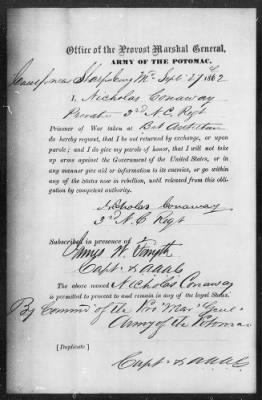 Office of the Provost Marshal General,
ARMY OF THE POTOMAC.
Camp near Sharpsburg Md Sept 27 1862
I, Nicholas Conaway
Private 3rd N.C. Regt
Prisoner of War taken at Bat Antietam
do hereby request, that I be not returned by exchange, or upon
parole; and I do give my parole of honor, that I will not take
up arms against the Government of the United States, or in
any manner give aid or information to its enemies, or go within
any of the States now in rebellion, until released from this obligation
by competent authority.
Nicholas Conaway
3rd N.C Regt
Subscribed in presence of
James W. Forsyth
Capt & A.A.A.G
The above named Nicholas Conaway
is permitted to proceed to and remain in any of the loyal States.
By Command of the Pro Mar Genl
Army of the Potomac
[Duplicate]
Capt & A.A.A.G